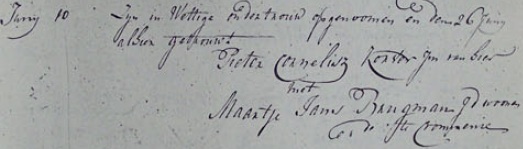 Juny 10 Zyn in Wettige ondertrouw opgenoomen en dem 26 Juny
alhier getrouwt
Pieter Cornelisz Konter Jm van hier
met
Maartje Jans Brugman Jd woonen
op de Crommenie